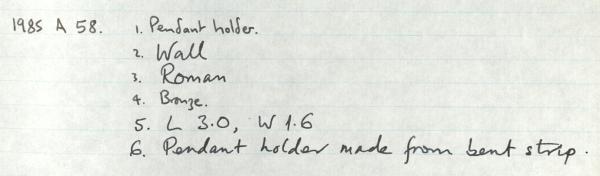 1985 A 58. 1. Pendant holder.
2. Wall
3. Roman
4. Bronze.
5. L 3.0, W 1.6
6. Pendant holder made from bent strip.